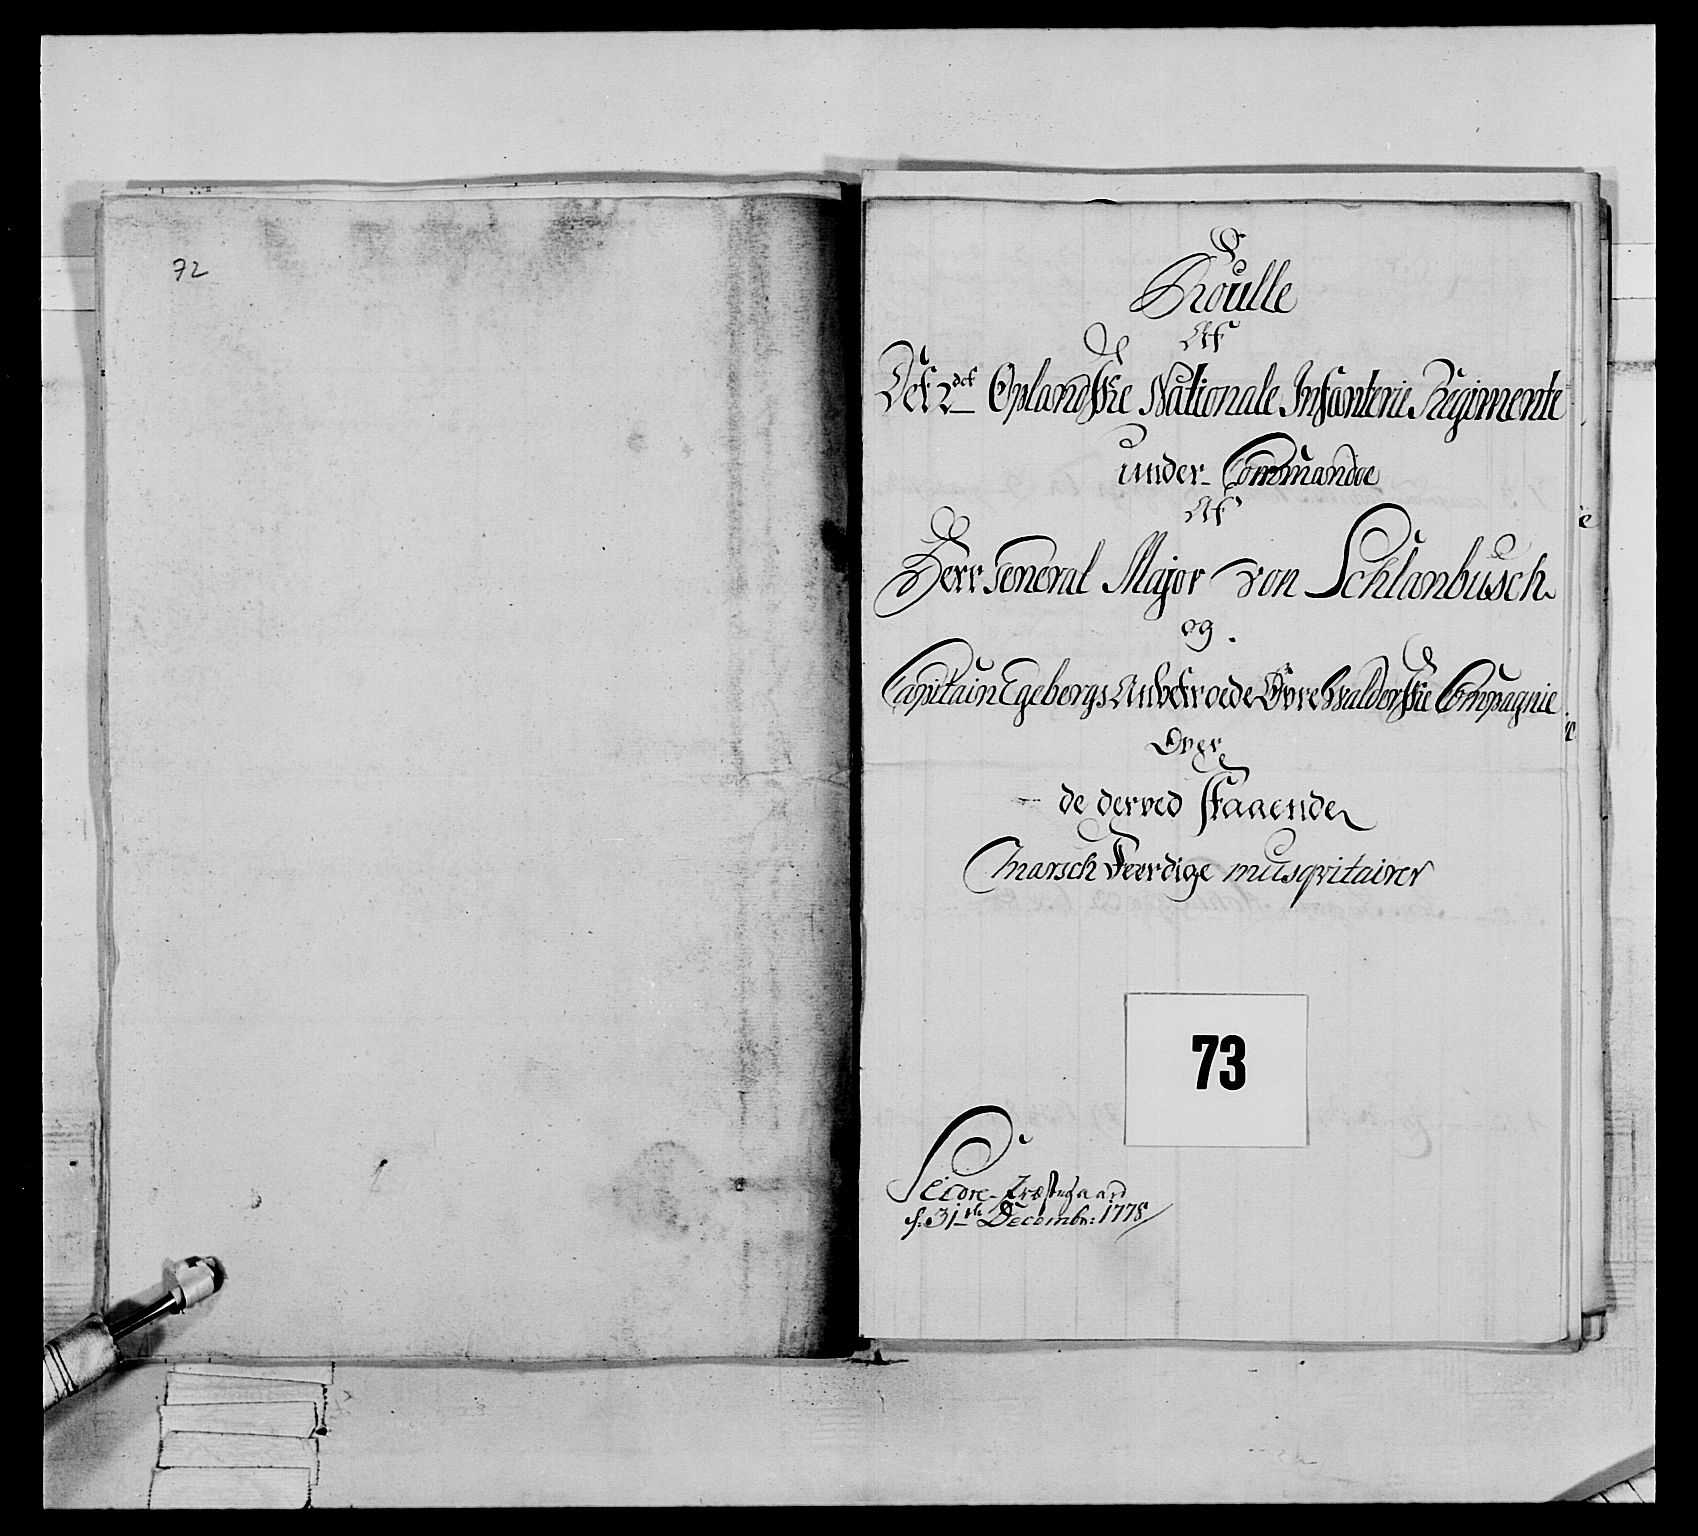 72
Roulle
Af
Det 2det Oplandske Nationale Infanterie Regimente
under Commandoe
Af
Herr General Major von Schlanbusch
og.
Capitain Egebergs Anbetroede Øvre Walderske Compagnie
Over
de derved staaende
Marsch Feerdige musqvitairer
73
Sidre Præstegaard
d: 31te Decembr: 1778